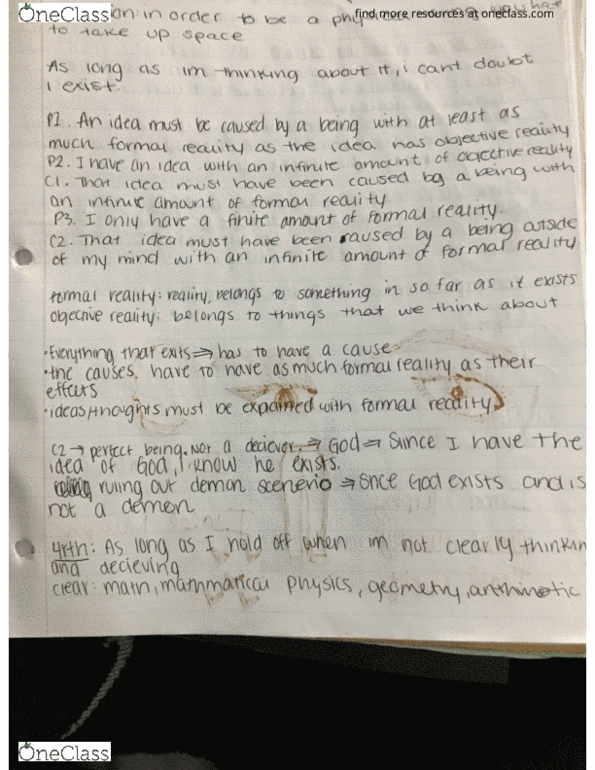 OneClass
find more resources at oneclass.com
on: in order to be a
to take up space
As long as im thinking about it, i cant doubt
i exist.
P1. An idea must be caused by a being with at least as
much formal reality as the idea has objective reality
P2. I have an idea with an infinite amount of objective reality
C1. That idea must have been caused by a being with
an infinite amount of formal reality.
P3. I only have a finite amount of formal reality.
C2. That idea must have been caused by a being outside
of my mind with an infinite amount of formal reality
formal reality: reality, belongs to something in so far as it exists
objective reality: belongs to things that we think about
•Everything that exits ⇒ has to have a cause
•the causes have to have as much formal reality as their
effects
•ideas/thoughts must be expained with formal reality
C2 → perfect being. Not a deciever. ⇒ God ⇒ Since I have the
idea of God, I know he exists.
ruling out demon scenerio ⇒ Snce God exists and is
not a demon
4rth: As long as I hold off when im not clearly thinkin
and decieving
clear: math, mathmaticcu physics, geometry, arithmetic
OneClass